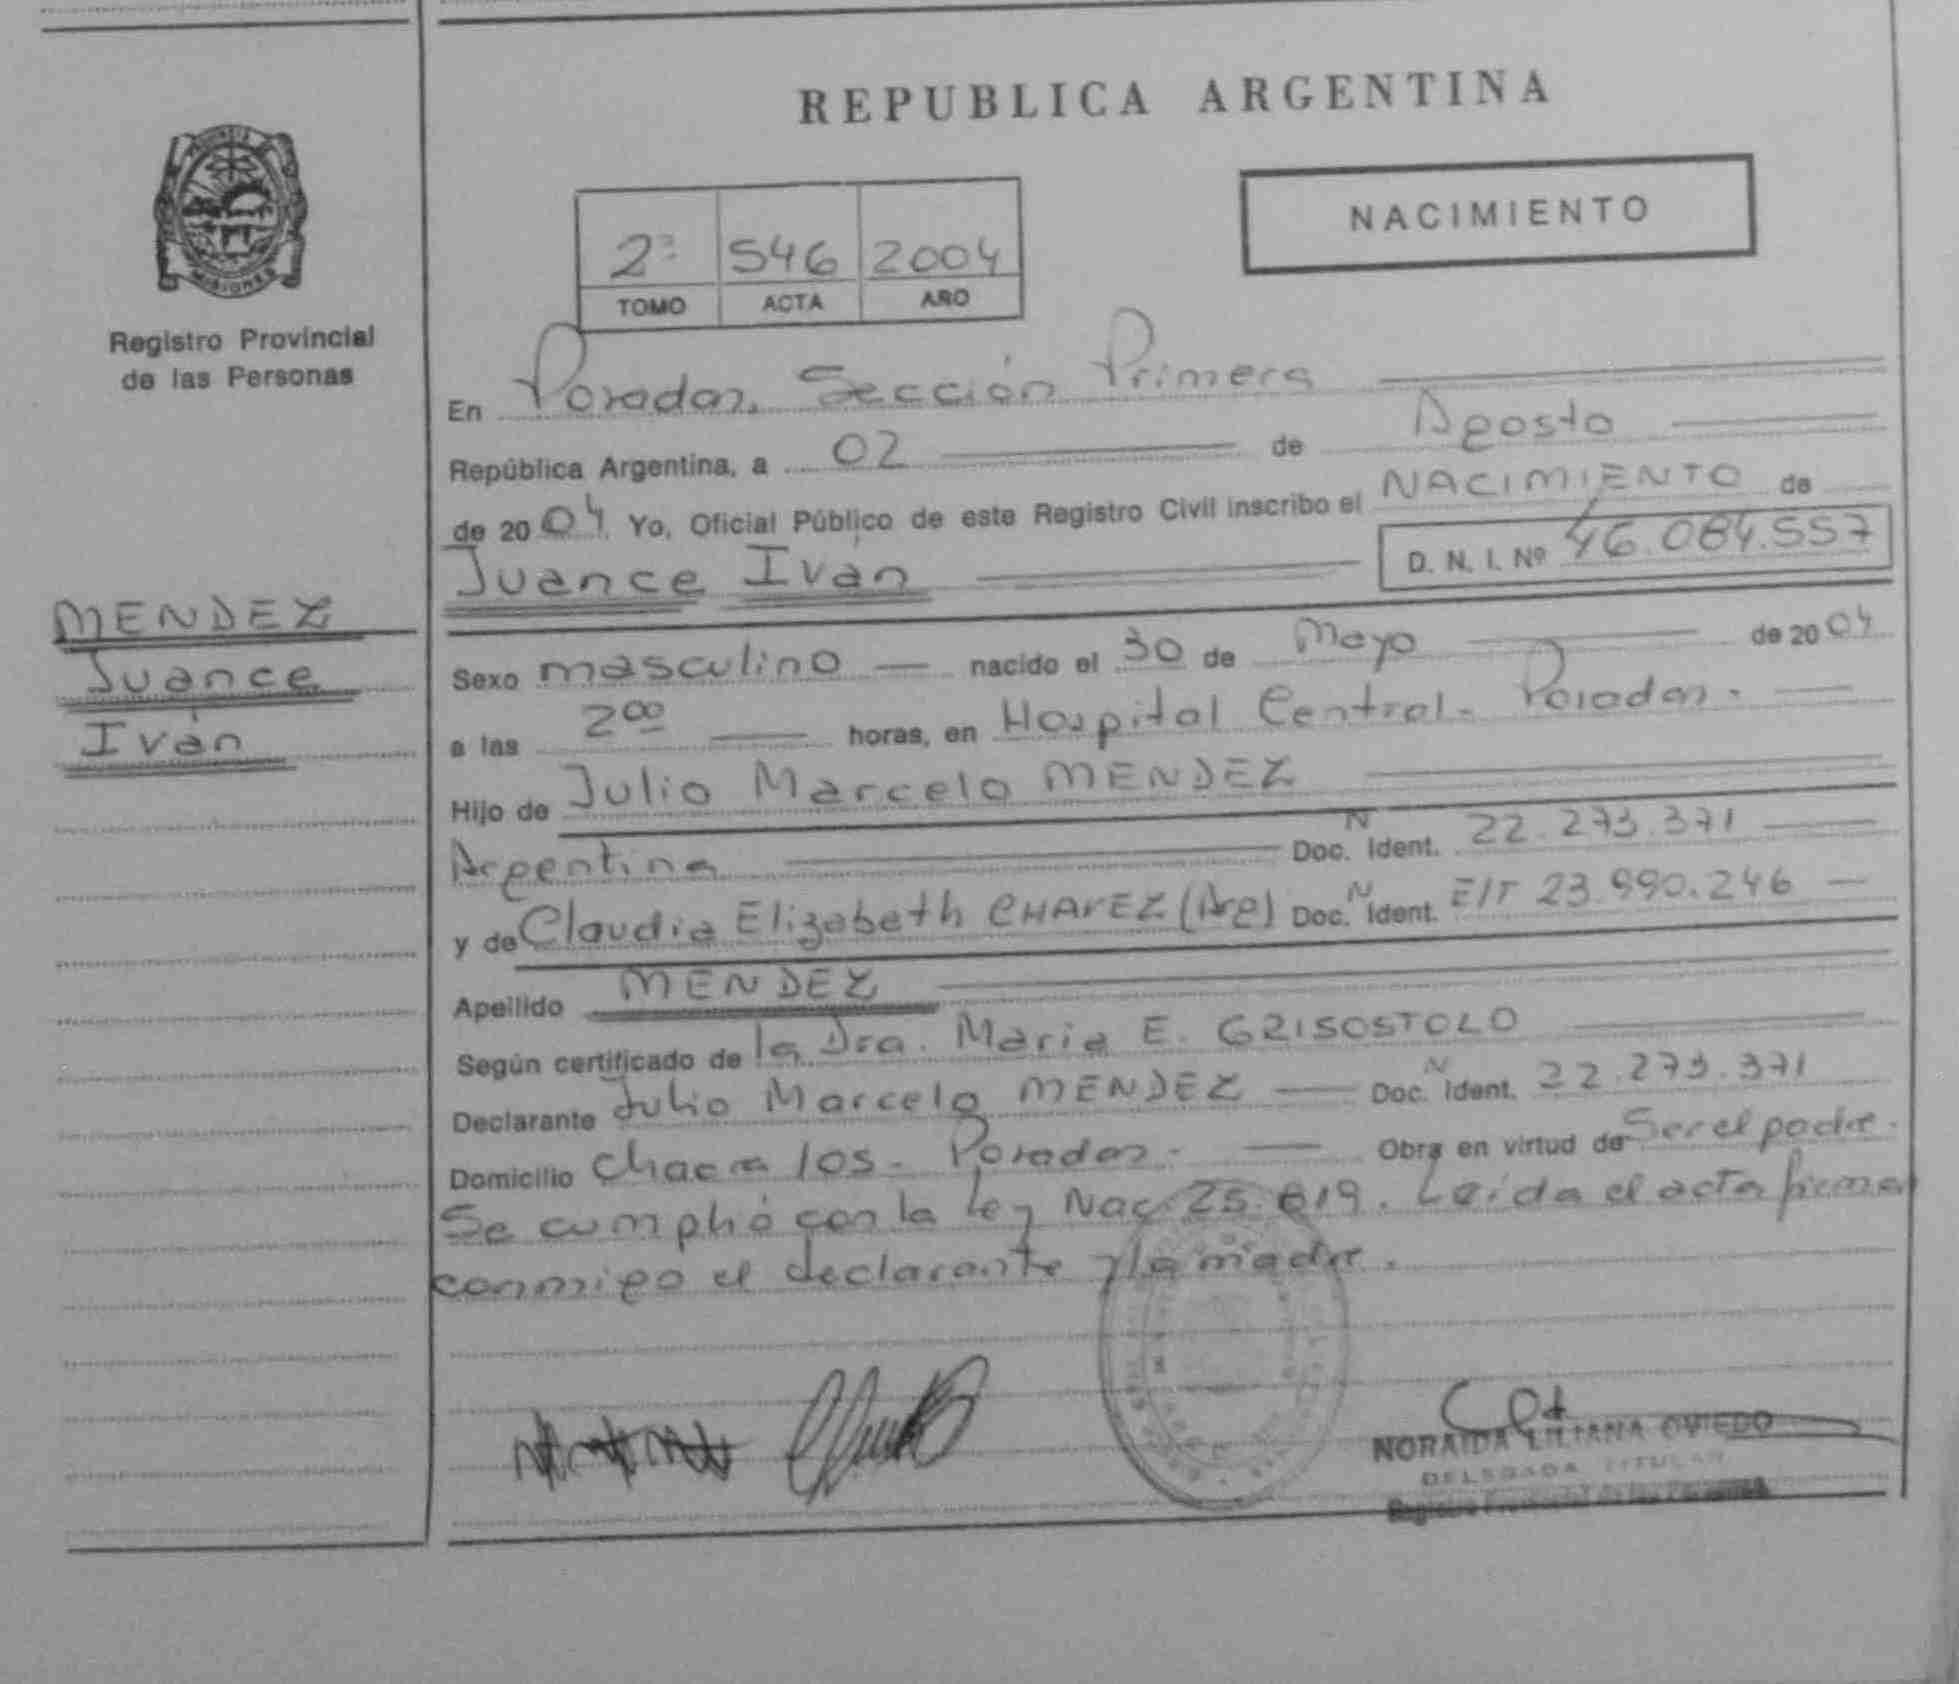 REPUBLICA ARGENTINA
NACIMIENTO
2ª 546 2004
TOMO ACTA AÑO
MISIONES
Registro Provincial
de las Personas
MENDEZ
Juance
Iván
En Posadas, Sección Primera
República Argentina, a 02 de Agosto
de 2004 Yo, Oficial Público de este Registro Civil inscribo el NACIMIENTO de
Juance Iván D. N. I. Nº 46.084.557
Sexo masculino nacido el 30 de Mayo de 2004
a las 2⁰⁰ horas, en Hospital Central. Posadas.
Hijo de Julio Marcelo MENDEZ
Argentina Doc. N Ident. 22.273.371
y de Claudia Elizabeth CHAVEZ (Arg) Doc. N Ident. E/T 23.990.246
Apellido MENDEZ
Según certificado de la Dra. Maria E. GRISOSTOLO
Declarante Julio Marcelo MENDEZ Doc. N Ident. 22.273.371
Domicilio Chacra 105. Posadas. Obra en virtud de Ser el padre.
Se cumplió con la Ley Nac. 25.819. Leída el acta firman
conmigo el declarante y la madre.
NORAIDA LILIANA OVIEDO
DELEGADA TITULAR
Registro Provincial de las Personas